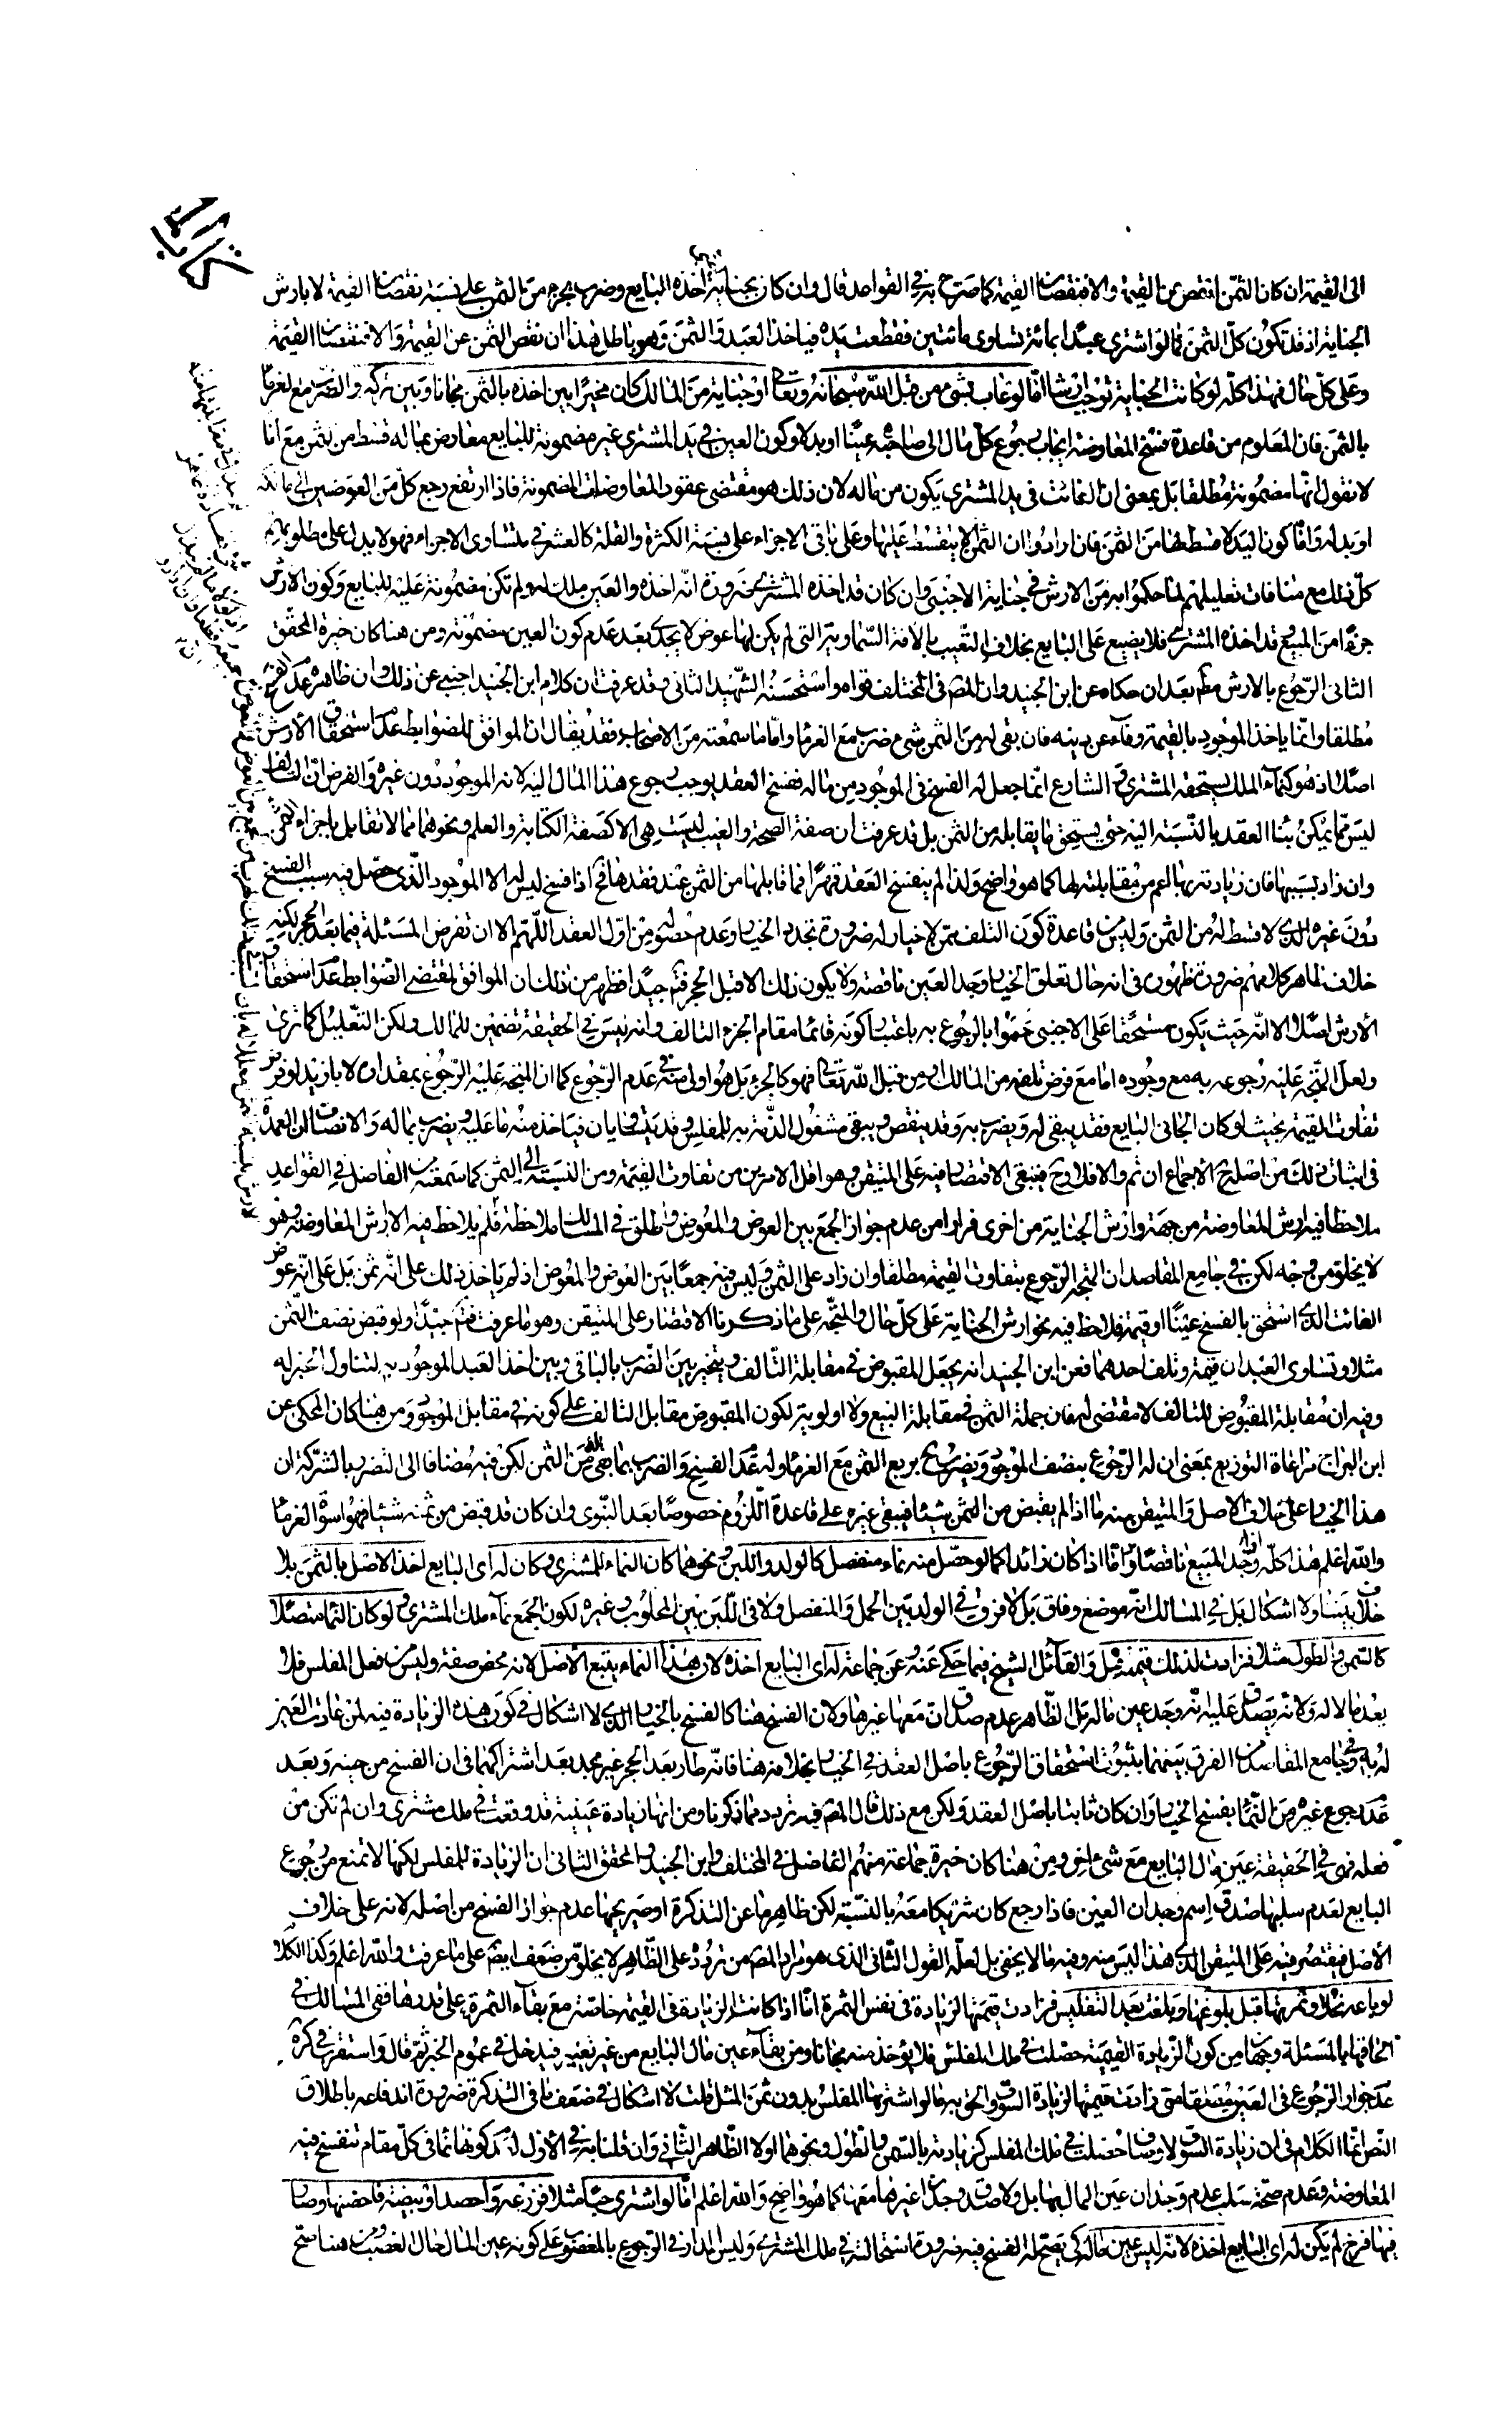 الى القيمة ان كان الثمن انقص من القيمة والا فنقصان القيمة كما صرح به في القواعد قال وان كان بجناية اجنبي اخذه البايع وضرب بجزء من الثمن على نسبة نقصان القيمة لا بارش
الجناية اذ قد تكون كل الثمن كما لو اشترى عبدا بمائة تساوى مائتين فقطعت يده فياخذ العبد والثمن وهو باطل هذا ان نقص الثمن عن القيمة والا فنقصان القيمة
وعلى كل حال فهذا كله لو كانت الجناية توجب ارشا اما لو عاب بشئ من قبل الله سبحانه وتعالى او جناية من المالك كان مخيرا بين اخذه بالثمن مجانا وبين تركه والضرب مع الغرماء
بالثمن فان المعلوم من قاعدة فسخ المعاوضة ايجاب رجوع كل مال الى صاحبه عينا او بدلا وكون العين في يد المشترى غير مضمونة للبايع معاوض بما له قسط من الثمن مع انا
لا نقول انها مضمونة مطلقا بل بمعنى ان الفائت في يد المشترى يكون من ماله لان ذلك هو مقتضى عقود المعاوضات المضمونة فاذا ارتفع رجع كل من العوضين الى مالكه
او بدله واما كون اليد لا قسط لها من الثمن فان ارادوا ان الثمن لا يتقسط عليها وعلى باقى الاجزاء على نسبة الكثرة والقلة كالعشر في متساوى الاجزاء فهو لا يدل على مطلوبهم
كل ذلك مع منافات تعليلهم لما حكموا به من الارش في جناية الاجنبى وان كان قد اخذه المشترى ضرورة انه اخذه والعين ملك له ولم تكن مضمونة عليه للبايع وكون الارش
جزءا من المبيع قد اخذه المشترى فلا يضيع على البايع بخلاف التعيب بالافة السماوية التى لم يكن لها عوض لا يجدى بعد عدم كون العين مضمونة ومن هنا كان خيرة المحقق
الثانى الرجوع بالارش مطم بعد ان حكاه عن ابن الجنيد وان الفاضل في المختلف قواه واستحسنه الشهيد الثانى وقد عرفت ان كلام ابن الجنيد اجنبى عن ذلك وان ظاهره عدم الفسخ
مطلقا وانما ياخذ الموجود بالقيمة وفاء عن دينه فان بقى له من الثمن شئ ضرب مع الغرماء واما ما سمعته من الاصحاب فقد يقال ان الموافق للضوابط عدم استحقاق الارش
اصلا اذ هو كنماء الملك يستحقه المشترى والشارع انما جعل له الفسخ في الموجود من ماله ففسخ العقد يوجب رجوع هذا المال اليه لانه الموجود دون غيره والفرض ان التالف
ليس مما يمكن بقاء العقد بالنسبة اليه حتى يستحق ما يقابله من الثمن بل قد عرفت ان صفة الصحة والعيب ليست هى الا كصفة الكتابة والعلم ونحوهما مما لا تقابل باجزاء الثمن
وان زاد بسببها فان زيادته بها اعم من مقابلته لها كما هو واضح ولذا لم ينفسخ العقد قهرا فيما قابلها من الثمن عند فقدها فح اذا فسخ ليس له الا الموجود الذى حصل فيه سبب الفسخ
دون غيره الذى لا قسط له من الثمن وليس من قاعدة كون التلف ممن لا خيار له ضرورة تجدد الخيار وعدم حصوله من اول العقد اللهم الا ان تفرض المسئلة فيما بعد الحجر لكنه
خلاف ظاهر كلامهم ضرورة ظهوره في انه حال تعلق الخيار وجد العين ناقصة ولا يكون ذلك الا قبل الحجر فتم جيدا فظهر من ذلك ان الموافق لمقتضى الضوابط عدم استحقاق
الارش اصلا الا انه حيث يكون مستحقا على الاجنبى حكموا بالرجوع به باعتبار كونه قائما مقام الجزء التالف وانه ليس في الحقيقة تضمين للمالك ولكن التعليل كما ترى
ولعل المتجه عليه رجوعه به مع وجوده اما مع فرض تلفه من المالك او من قبل الله تعالى فهو كالجزء بل هو اولى منه في عدم الرجوع كما ان المتجه عليه الرجوع بمقداره لا بازيد لو فرض
تفاوت القيمة بحيث لو كان الجانى البايع فقد يبقى له ويضرب به وقد ينقص ويبقى مشغول الذمة به للمفلس وقد يتساويان فياخذ منه ما عليه ويضرب بماله والانصاف ان العمدة
في اثبات ذلك من اصله الاجماع ان تم والا فلا وح فينبغى الاقتصار فيه على المتيقن وهو اقل الامرين من تفاوت القيمة ومن النسبة الى الثمن كما سمعته من الفاضل في القواعد
ملاحظا فيه ارش المعاوضة من جهة وارش الجناية من اخرى فرارا من عدم جواز الجمع بين العوض والمعوض واطلق في المسالك ملاحظة فلم يلاحظ فيه الا ارش المعاوضة وهو
لا يخلو من وجه لكن في جامع المقاصد ان المتجه الرجوع بتفاوت القيمة مطلقا وان زاد على الثمن وليس فيه جمعا بين العوض والمعوض اذ لم ياخذ ذلك على انه ثمن بل على انه عوض
الفائت الذى استحق بالفسخ عينا او قيمة فلاحظ فيه نحو ارش الجناية على كل حال والمتجه على ما ذكرنا الاقتصار على المتيقن وهو ما عرفت فتم جيدا ولو قبض نصف الثمن
مثلا وتساوى العبدان قيمة وتلف احدهما فعن ابن الجنيد انه يجعل المقبوض في مقابلة التالف ويتخير بين الضرب بالباقى وبين اخذ العبد الموجود به لتناول الخبر له
وفيه ان مقابلة المقبوض للتالف لا مقتضى له فان جملة الثمن في مقابلة المبيع ولا اولوية لكون المقبوض مقابل التالف على كونه في مقابل الموجود ومن هنا كان المحكى عن
ابن البراج مراعاة التوزيع بمعنى ان له الرجوع بنصف الموجود ويضرب ح بربع الثمن مع الغرماء وله عدم الفسخ والضرب بما بقى له من الثمن لكن فيه مضافا الى التضرر بالشركة ان
هذا الخيار على خلاف الاصل والمتيقن منه ما اذا لم يقبض من الثمن شيئا فيبقى غيره على قاعدة اللزوم خصوصا بعد النبوى وان كان قد قبض من ثمنه شيئا فهو اسوة الغرماء
والله اعلم هذا كله اذا وجد المبيع ناقصا واما اذا كان زائدا كما لو حصل منه نماء منفصل كالولد واللبن ونحوهما كان النماء للمشترى وكان له اى البايع اخذ الاصل بالثمن بلا
خلاف بيننا ولا اشكال بل في المسالك انه موضع وفاق بل لا فرق في الولد بين الحمل والمنفصل ولا في اللبن بين المحلوب وغيره لكون الجمع نماء ملك المشترى ولو كان النماء متصلا
كالسمن والطول مثلا فزادت لذلك قيمته قيل والقائل الشيخ فيما حكى عنه وعن جماعة له اى البايع اخذه لان هذا النماء يتبع الاصل لانه محض صفة وليس من فعل المفلس فلا
يعد مالا له ولانه يصدق عليه انه وجد عين ماله بل الظاهر عدم صدق ان معها غيرها ولان الفسخ هنا كالفسخ بالخيار الذى لا اشكال في كون هذه الزيادة فيه لمن عادت العين
له به وفي جامع المقاصد من الفرق بينهما بثبوت استحقاق الرجوع باصل العقد في الخيار بخلافه هنا فانه طار بعد الحجر غير مجد بعد اشتراكهما في ان الفسخ من حينه وبعد
عدم رجوع غيره من النماء بفسخ الخيار وان كان ثابتا باصل العقد ولكن مع ذلك قال المص فيه تردد مما ذكرنا ومن انها زيادة عينية قد وقعت في ملك مشترى وان لم تكن من
فعله فهى في الحقيقة عين مال البايع مع شئ اخر ومن هنا كان خيرة جماعة منهم الفاضل في المختلف وابن الجنيد والمحقق الثانى ان الزيادة للمفلس لكنها لا تمنع من رجوع
البايع لعدم سلبها صدق اسم وجدان العين فاذا رجع كان شريكا معه بالنسبة لكن ظاهر ما عن التذكرة او صريحها عدم جواز الفسخ من اصله لانه على خلاف
الاصل فيقتصر فيه على المتيقن الذى هذا ليس منه وفيه ما لا يخفى بل لعله القول الثانى الذى هو مراد المص من تردده على الظاهر لا يخلو من ضعف ايضم على ما عرفت والله اعلم وكذا الكلام
لو باعه نخلا وثمرتها قبل بلوغها وبلغت بعد التفليس فزادت قيمتها لزيادة في نفس الثمرة اما اذا كانت الزيادة في القيمة خاصة مع بقاء الثمرة على قدرها ففى المسالك في
الحاقها بالمسئلة وجهان من كون الزيادة القيمية حصلت في ملك المفلس فلا يؤخذ منه مجانا ومن بقاء عين مال البايع من غير تغيير فيدخل في عموم الخبر ثم قال واستقرب في كره
عدم جواز الرجوع في العين مقتصرا متى زادت قيمتها لزيادة السوق والحق به ما لو اشتراها المفلس بدون ثمن المثل قلت لا اشكال في ضعف ما في التذكرة ضرورة اندفاعه باطلاق
النص انما الكلام في ان زيادة السوق لاوصاف حصلت في ملك المفلس كزيادته بالسمن والطول ونحوهما اولا الظاهر الثانى وان قلنا به في الاول لعدم كونها نماء في كل مقام تنفسخ فيه
المعاوضة وعدم صحة سلب عدم وجدان عين المال بها بل ولا صدق وجدان غيرها معها كما هو واضح والله اعلم اما لو اشترى حبا مثلا فزرعه واحصد او بيضة فاحضنها وصار
فيها فرخ لم يكن له اى البايع اخذه لانه ليس عين ماله كى يصح له الفسخ فيه ضرورة استحالته في ملك المشترى وليس المدار في الرجوع بالمغصوب على كونه عين المال حال الغصب ومن هنا صح